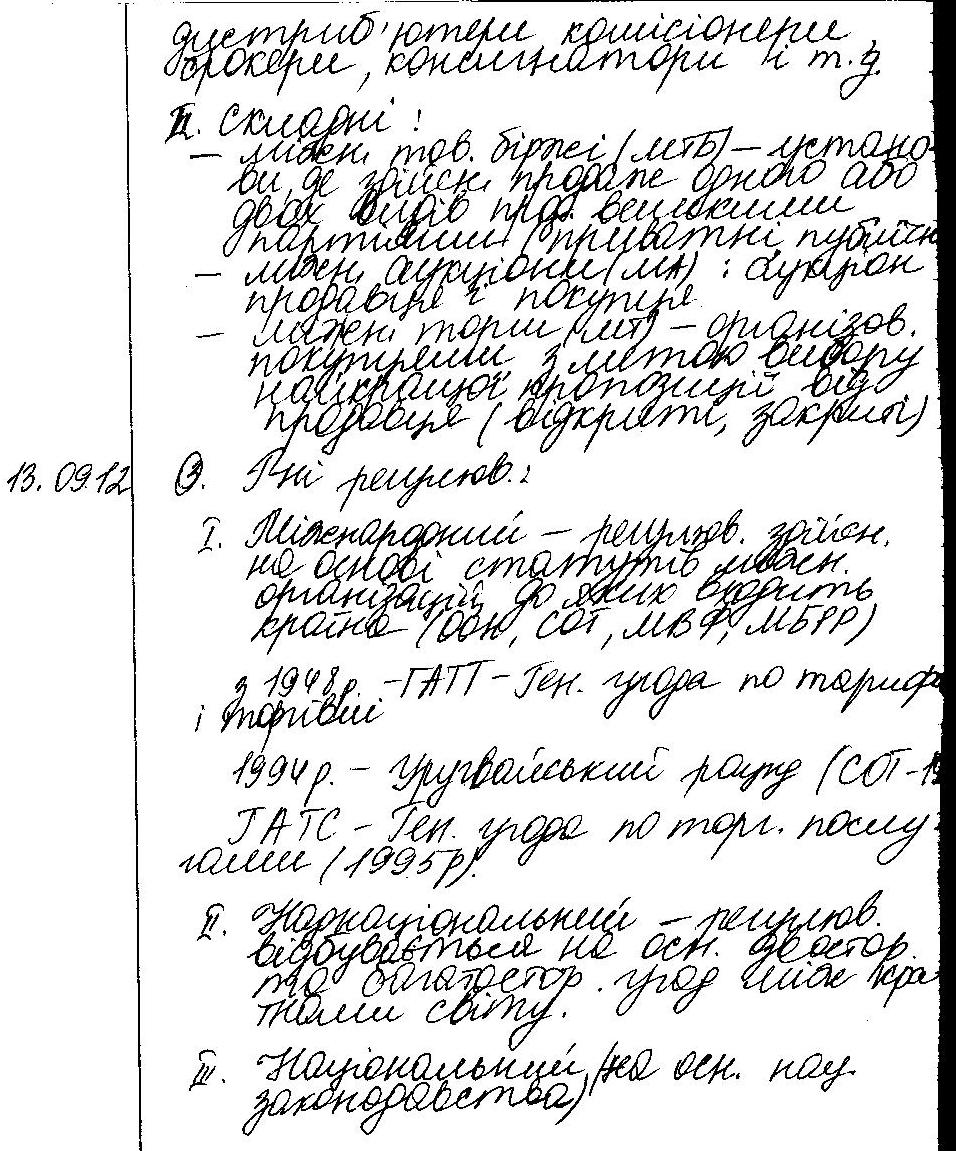 дистриб'ютери комісіонери,
брокери, консигнатори і т.д.
ІІ. Складні:
– міжн. тов. біржі (МТБ) – устано-
ви, де здійсн. продаж одного або
двох видів прод. великими
партіями (приватні, публічн
– міжн. аукціони (МА): аукціон
продавця і покупця
– міжн. торги (МТ) – організов.
покупцями з метою вибору
найкращої пропозиції від
продавця (відкриті, закриті)
13.09.12 3. Рні регулюв.:
І. Міжнародний – регулюв. здійсн.
на основі статутів міжн.
організацій до яких входить
країна (ООН, СОТ, МВФ, МБРР)
з 1948р. – ГАТТ – Ген. угода по тариф
і торгівлі
1994р. – Уругвайський раунд (СОТ – 19
ГАТС – Ген. угода по торг. послу-
гами (1995р).
ІІ. Наднаціональний – регулюв.
відбувається на осн. двостор.
та багатостор. угод між кра
їнами світу.
ІІІ. Національний (на осн. нац.
законодавства)